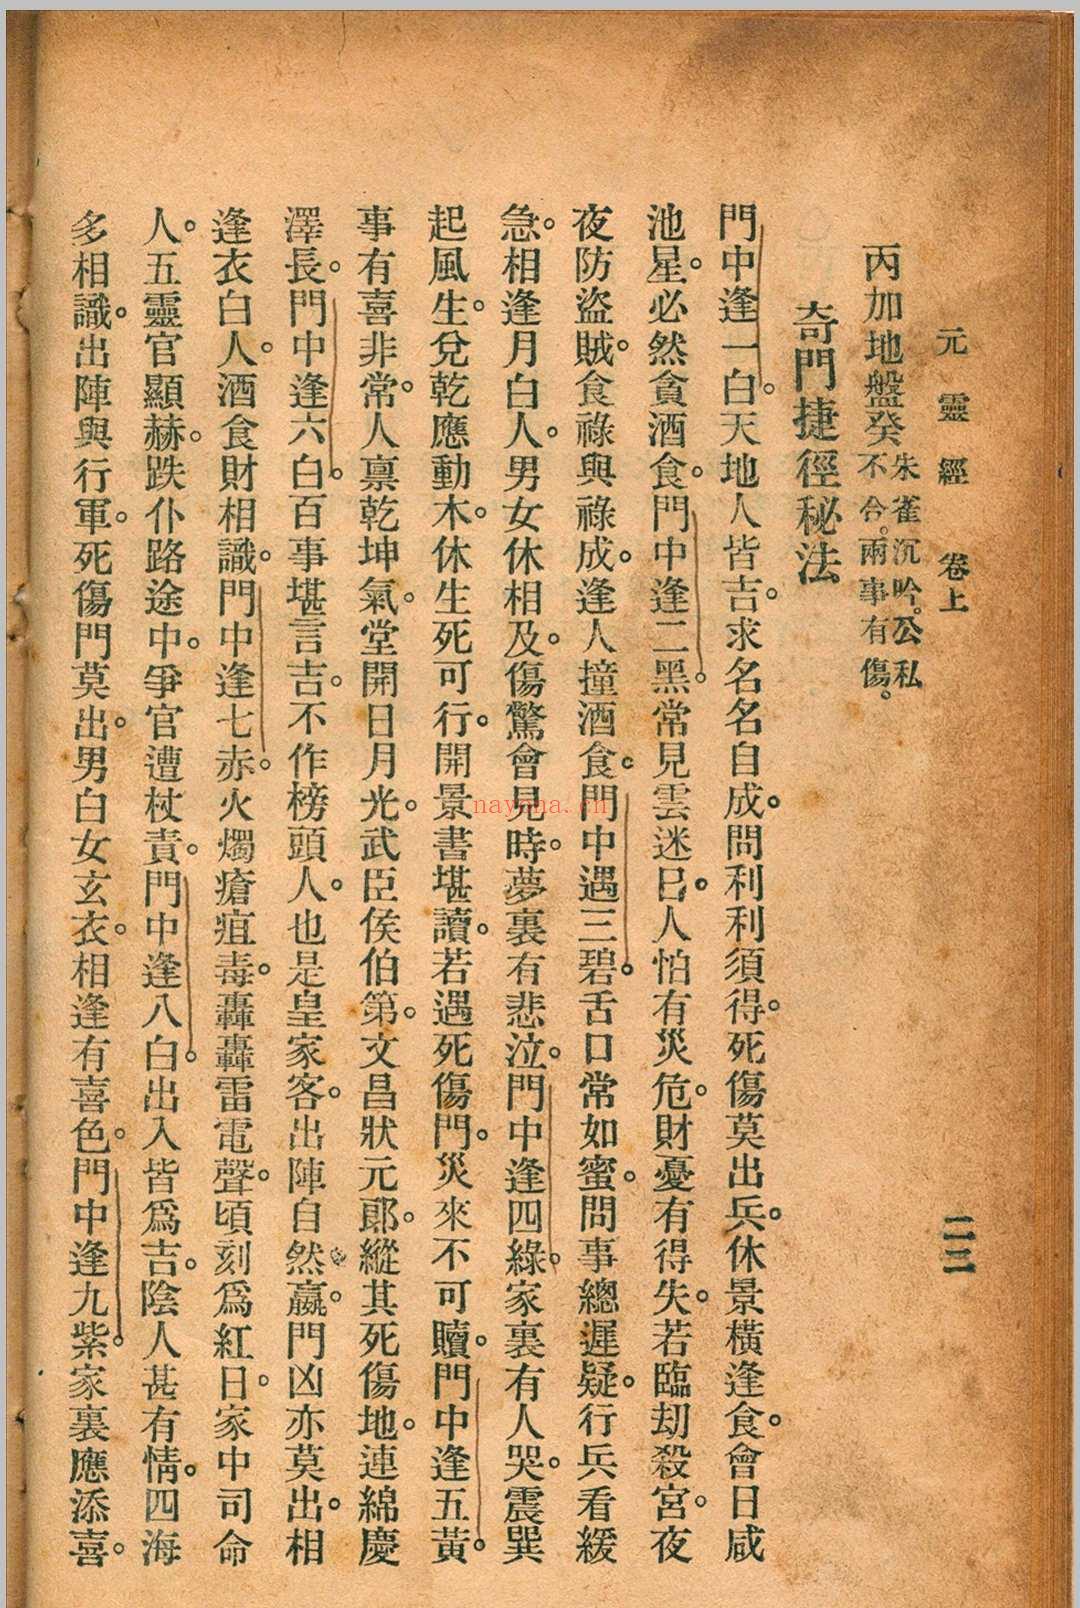 元靈經 卷上 二三
丙加地盤癸朱雀沉吟。公私不合。兩事有傷。
奇門捷徑秘法
門中逢一白。天地人皆吉。求名名自成。問利利須得。死傷莫出兵。休景橫逢食。會日咸
池星。必然貪酒食。門中逢二黑。常見雲迷巳。人怕有災危。財憂有得失。若臨劫殺宮。夜
夜防盜賊。食祿與祿成。逢人撞酒食。門中遇三碧。舌口常如蜜。問事總遲疑。行兵看緩
急。相逢月白人。男女休相及。傷驚會見時。夢裏有悲泣。門中逢四綠。家裏有人哭。震巽
起風生。兌乾應動木。休生死可行。開景書堪讀。若遇死傷門。災來不可贖。門中逢五黃。
事有喜非常。人禀乾坤氣。堂開日月光。武臣侯伯第。文昌狀元郎。縱其死傷地。連綿慶
澤長。門中逢六白。百事堪言吉。不作榜頭人。也是皇家客。出陣自然贏。門凶亦莫出。相
逢衣白人。酒食財相識。門中逢七赤。火燭瘡疽毒。轟轟雷電聲。頃刻爲紅日。家中司命
人。五靈官顯赫。跌仆路途中。爭官遭杖責。門中逢八白。出入皆爲吉。陰人甚有情。四海
多相識。出陣與行軍。死傷門莫出。男白女玄衣。相逢有喜色。門中逢九紫。家裏應添喜。
nayona.cn